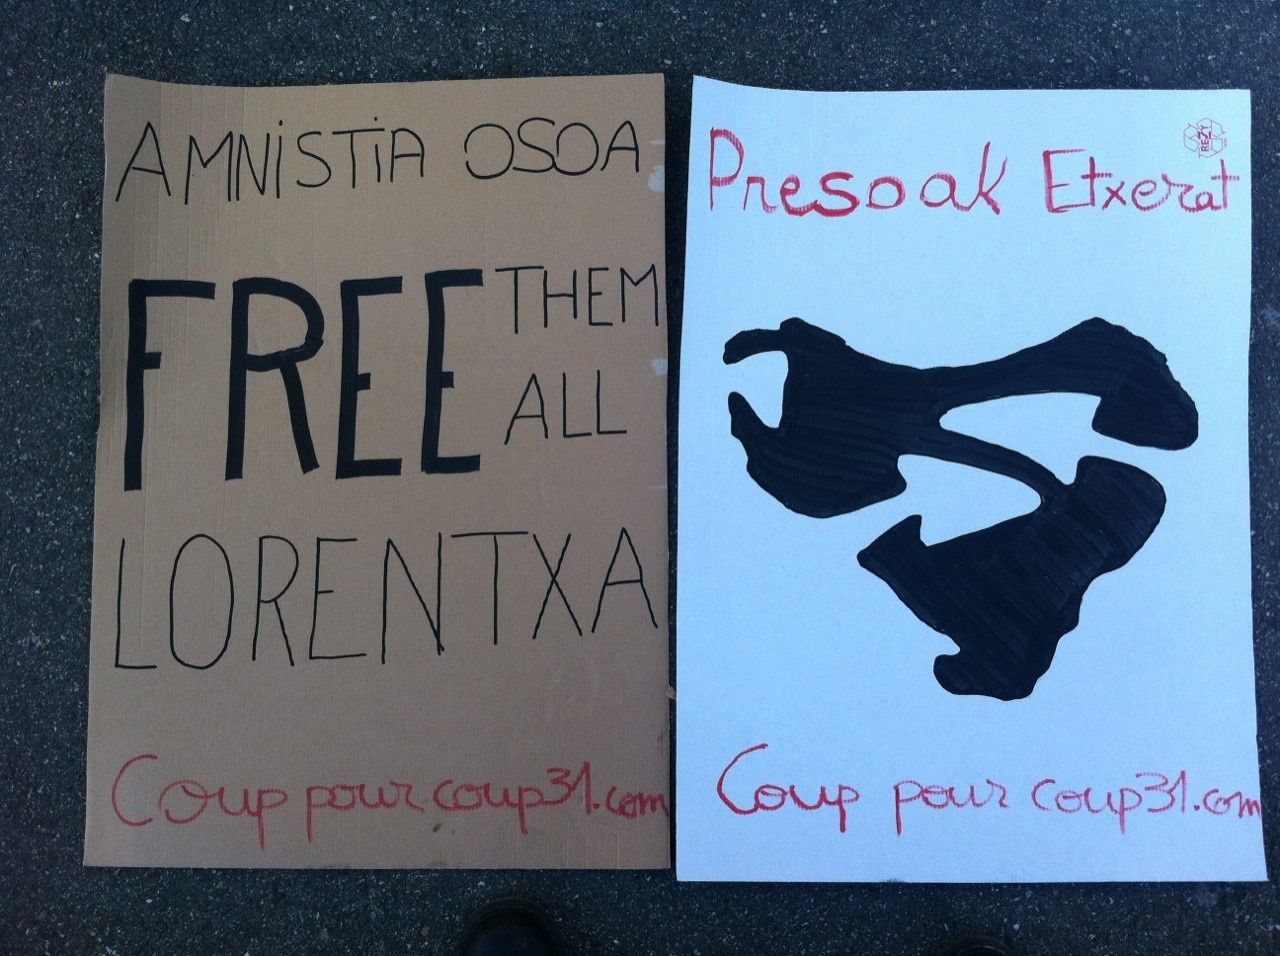 AMNiSTiA OSOA
FREE THEM
ALL
LORENTXA
Coup pour coup31.com
Presoak Etxerat
RESY
Coup pour coup31.com